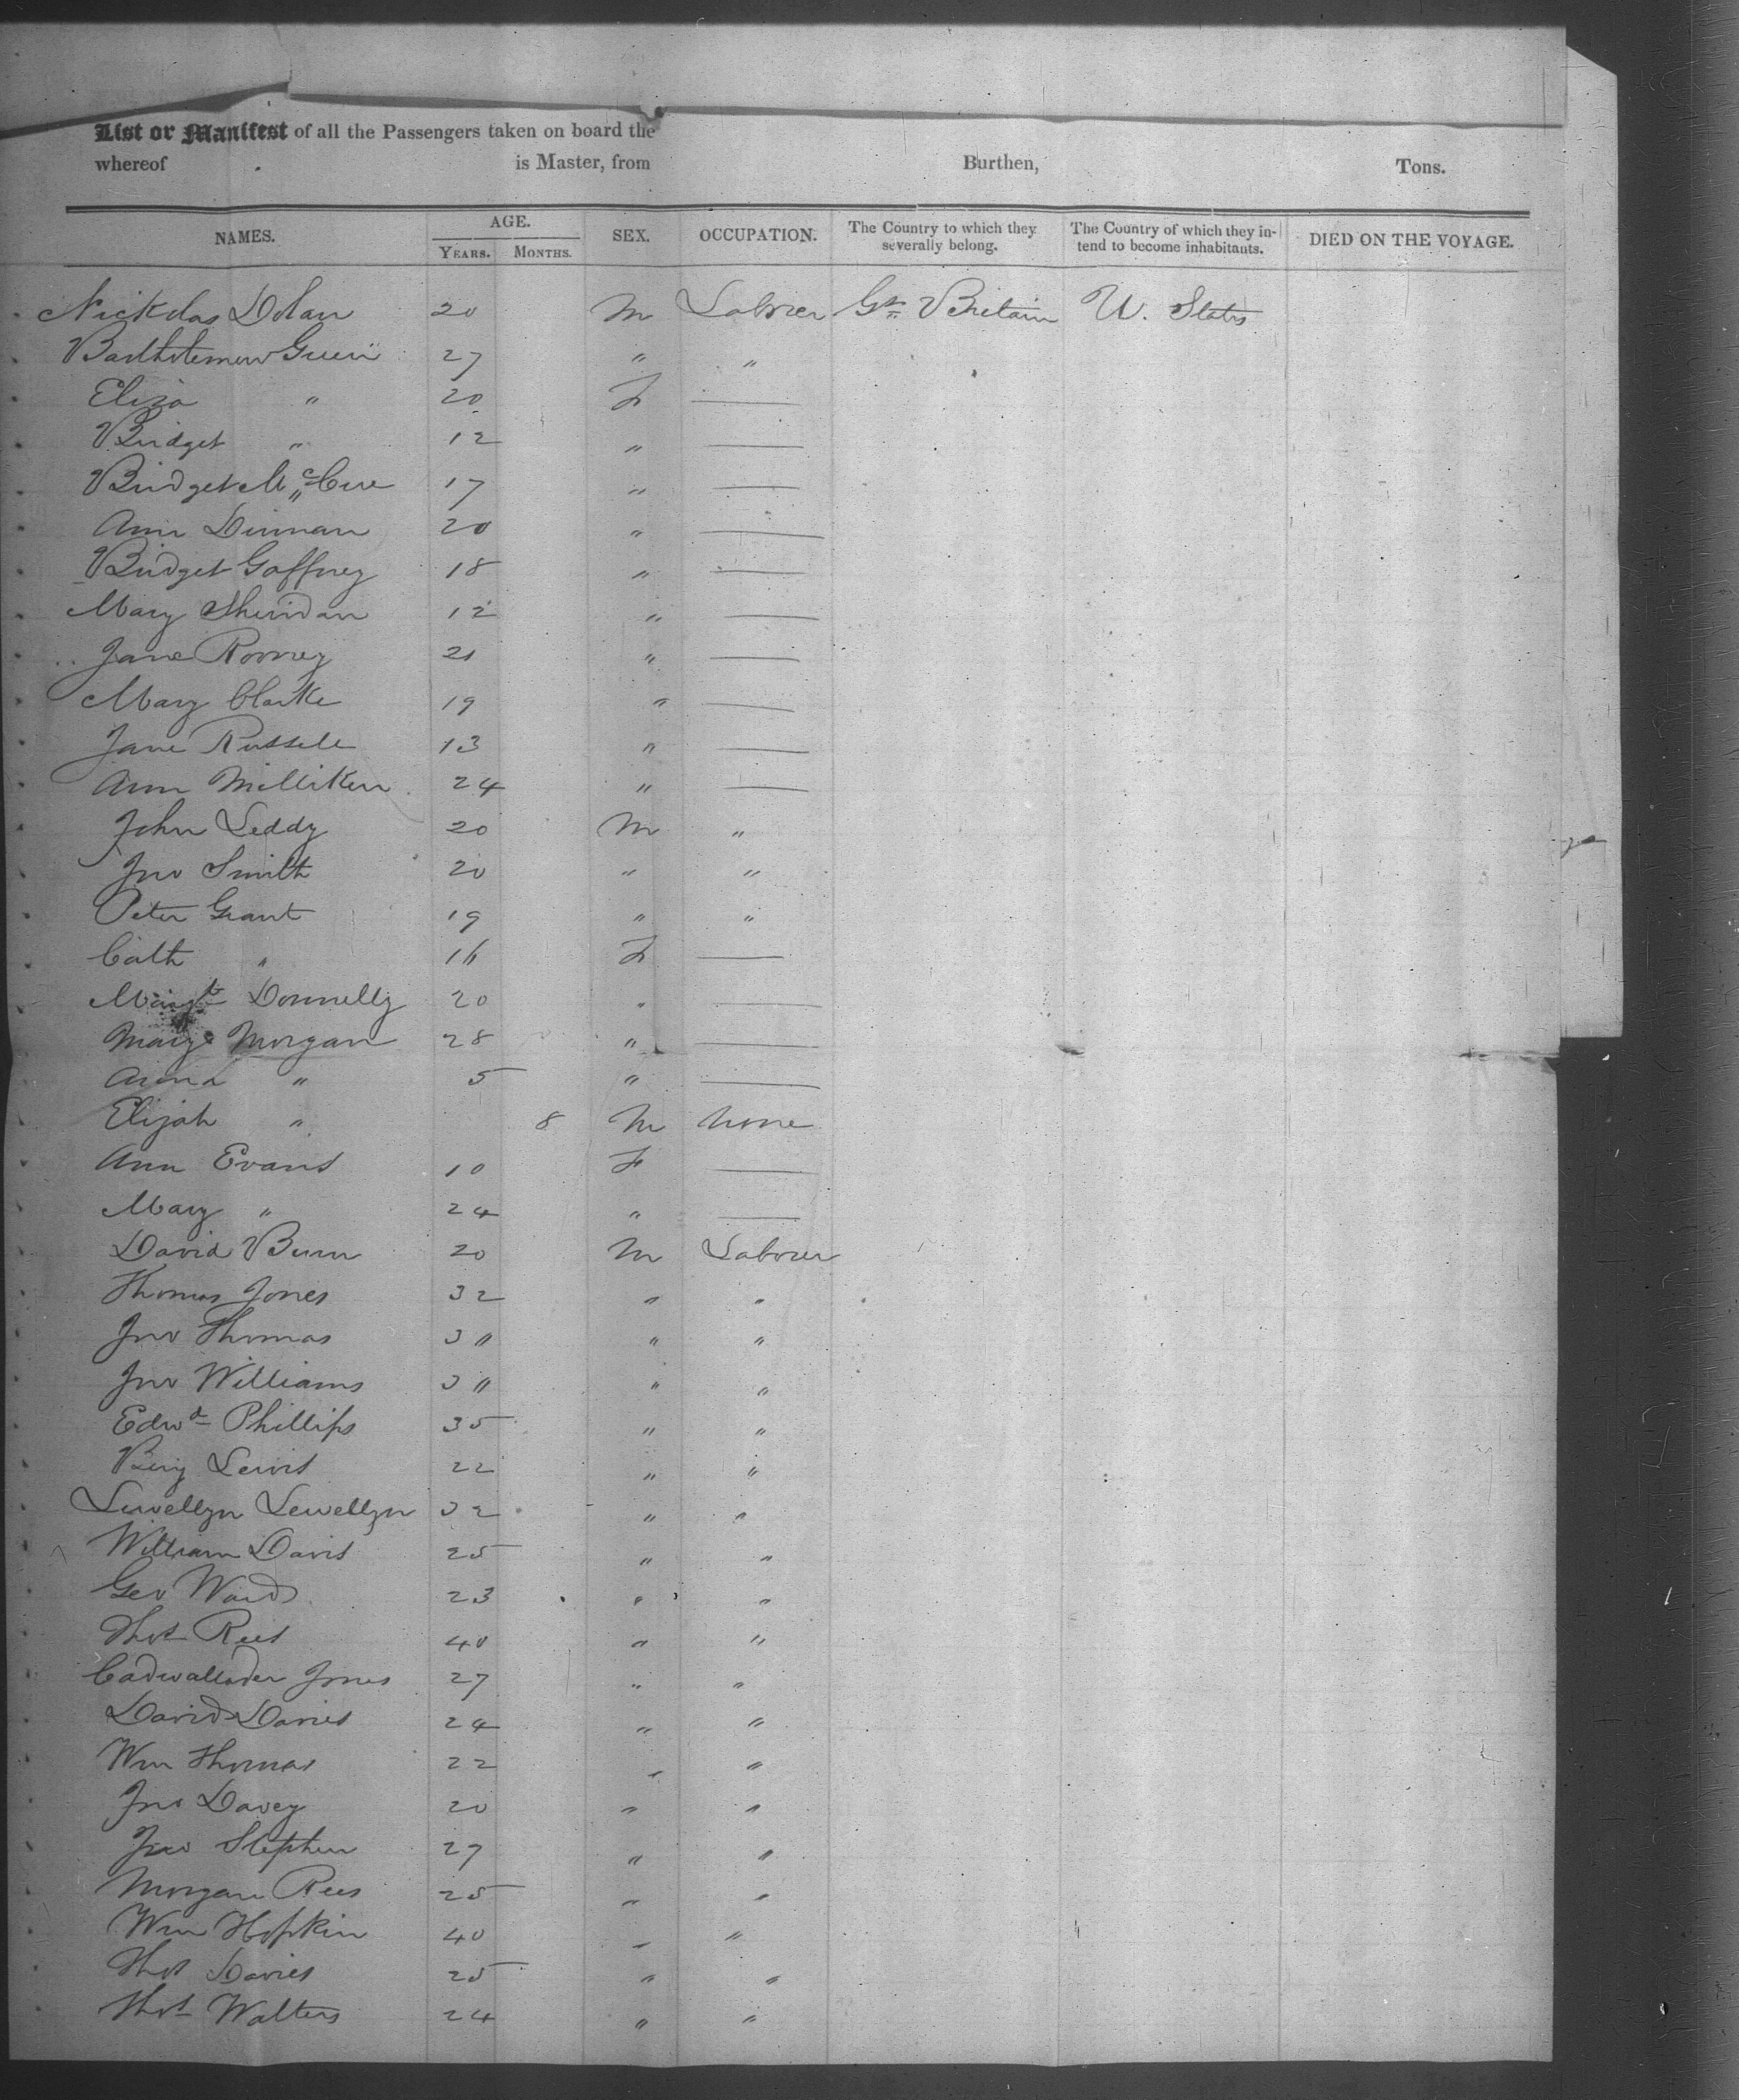 List or Manifest of all the Passengers taken on board the
whereof is Master, from Burthen, Tons.
NAMES. AGE. YEARS. MONTHS. SEX. OCCUPATION. The Country to which they severally belong. The Country of which they intend to become inhabitants. DIED ON THE VOYAGE.
Nickolas Dolan 20 M Laborer Gt Britain U. States
Bartholemew Green 27 " "
Eliza " 20 F —
Bridget " 12 " —
Bridget McCue 17 " —
Ann Dinnan 20 " —
Bridget Gaffney 18 " —
Mary Sheridan 12 " —
Jane Rooney 21 " —
Mary Clarke 19 " —
Jane Russell 13 " —
Ann Milliken 24 " —
John Leddy 20 M "
Jno Smith 20 " "
Peter Grant 19 " "
Cath " 16 F —
Margt Donnelly 20 " —
Mary Morgan 28 " —
Anna " 5 " —
Elijah " 8 M None
Ann Evans 10 F —
Mary " 24 " —
David Bunn 20 M Laborer
Thomas Jones 32 " "
Jno Thomas 3" " "
Jno Williams 3" " "
Edwd Phillips 35 " "
Benj Lewis 22 " "
Lewellyn Lewellyn 32 " "
William Davis 25 " "
Geo Ward 23 " "
Thos Rees 40 " "
Cadwallader Jones 27 " "
David Davies 24 " "
Wm Thomas 22 " "
Jno Davey 20 " "
Jno Stephen 27 " "
Morgan Rees 25 " "
Wm Hopkin 40 " "
Thos Davies 25 " "
Thos Walters 24 " "